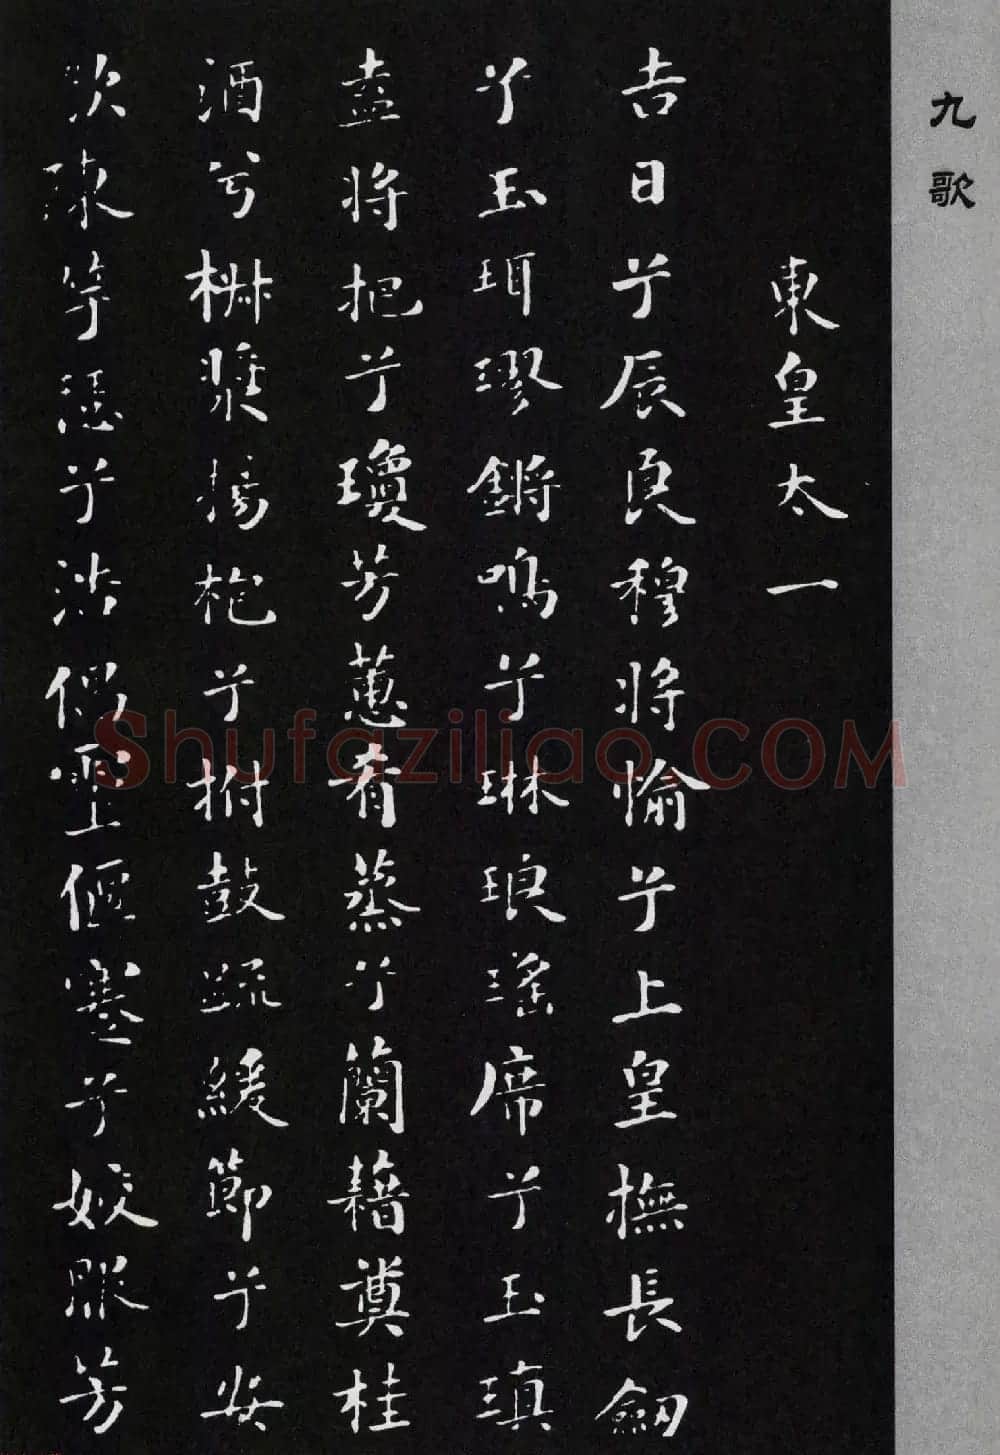 九歌
東皇太一
吉日兮辰良穆将愉兮上皇撫長劒
兮玉珥璆鏘鳴兮琳琅瑶席兮玉瑱
盍将把兮瓊芳蕙肴蒸兮蘭藉奠桂
酒兮椒漿揚枹兮拊鼓疏緩節兮安
歌陳竽瑟兮浩倡靈偃蹇兮姣服芳
Shufaziliao.COM